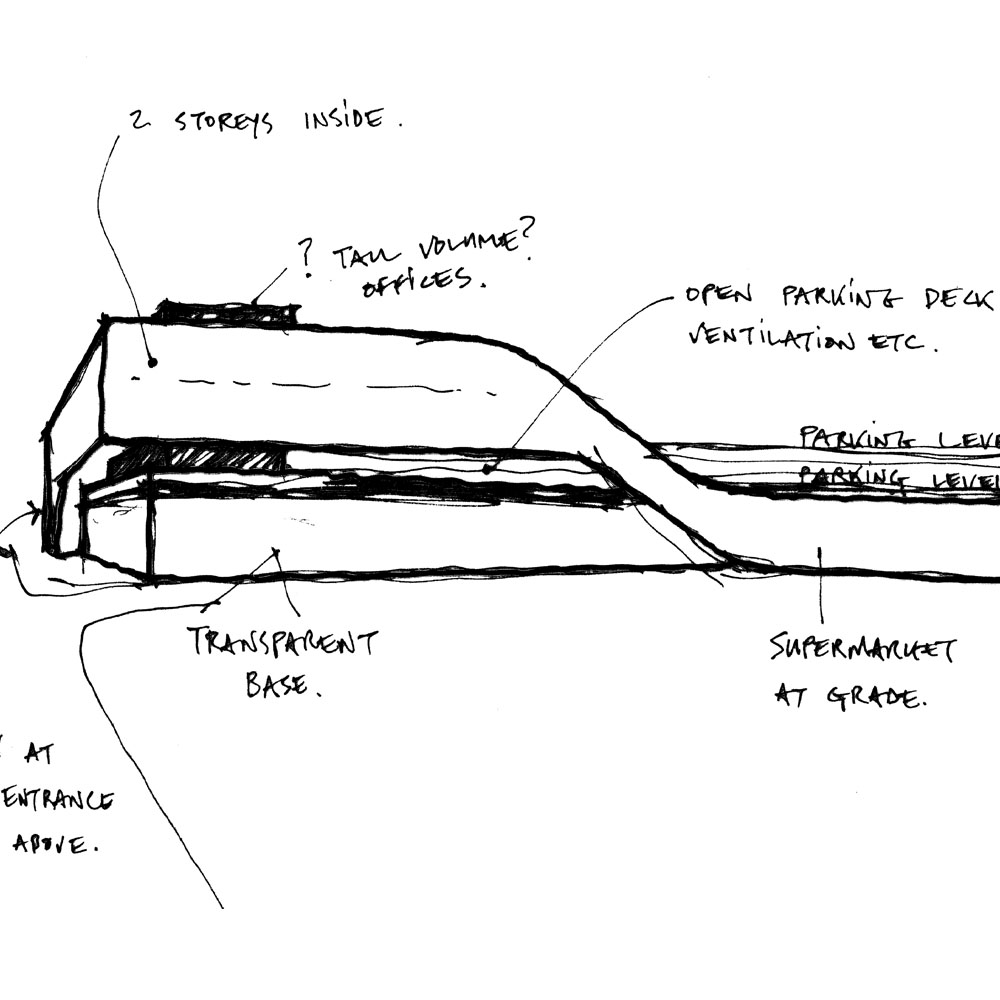 2 STOREYS INSIDE.
? TALL VOLUME?
OFFICES.
OPEN PARKING DECK
VENTILATION ETC.
PARKING LEVE
PARKING LEVEL
TRANSPARENT
BASE.
SUPERMARKET
AT GRADE.
AT
ENTRANCE
ABOVE.